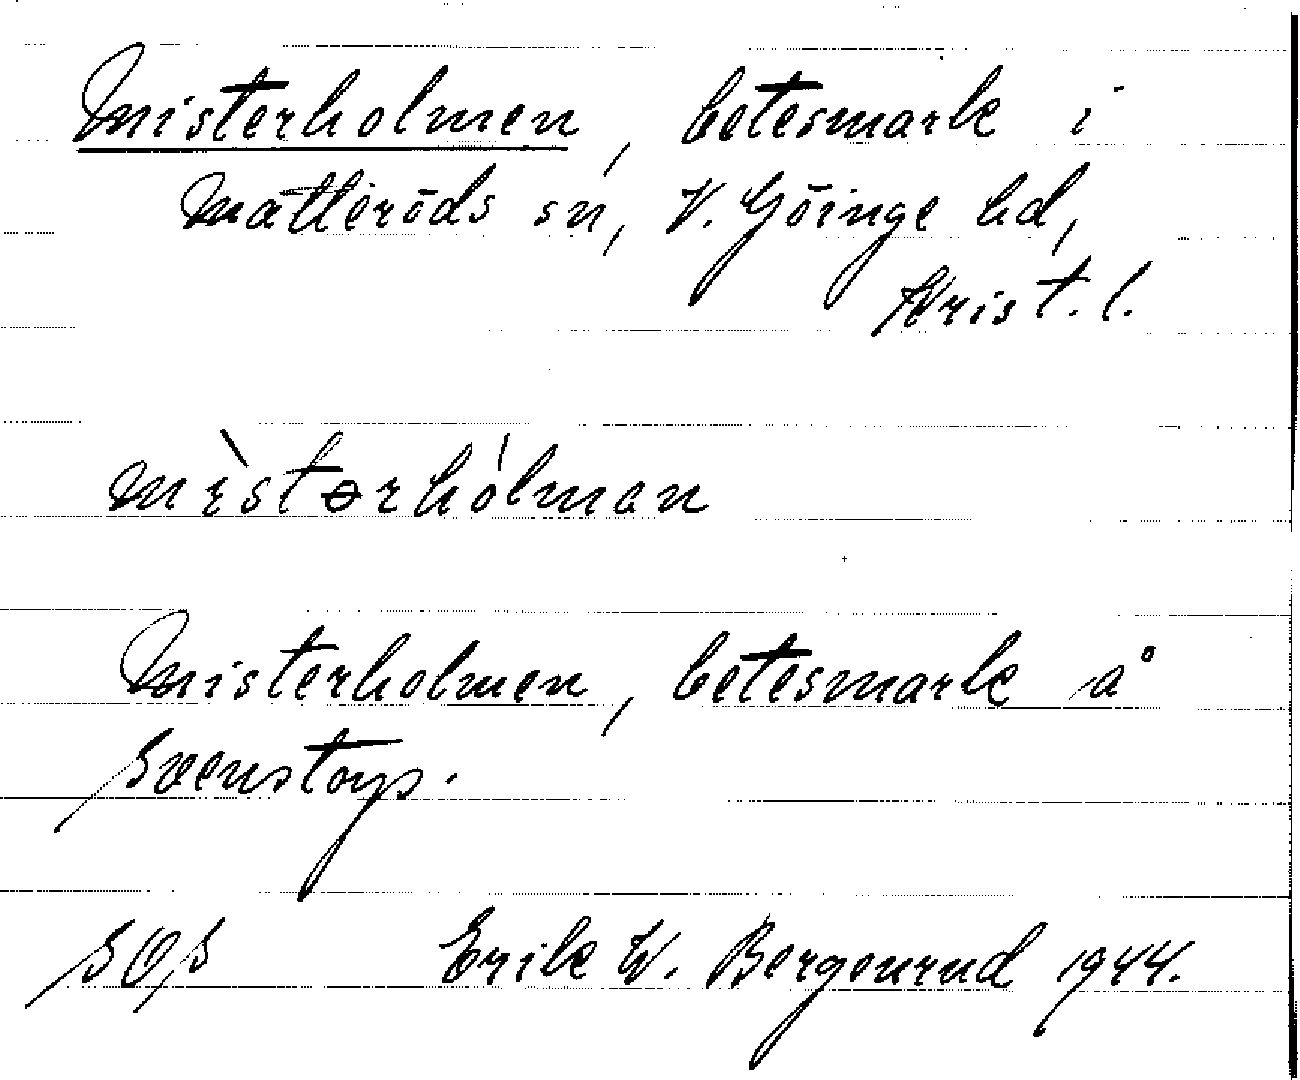 Misterholmen, betesmark i
Matteröds sn, V. Göinge hd,
Krist. l.
mìstərhólmən
Misterholmen, betesmark å
Svenstorp.
SOS Erik W. Bergenrud 1944.